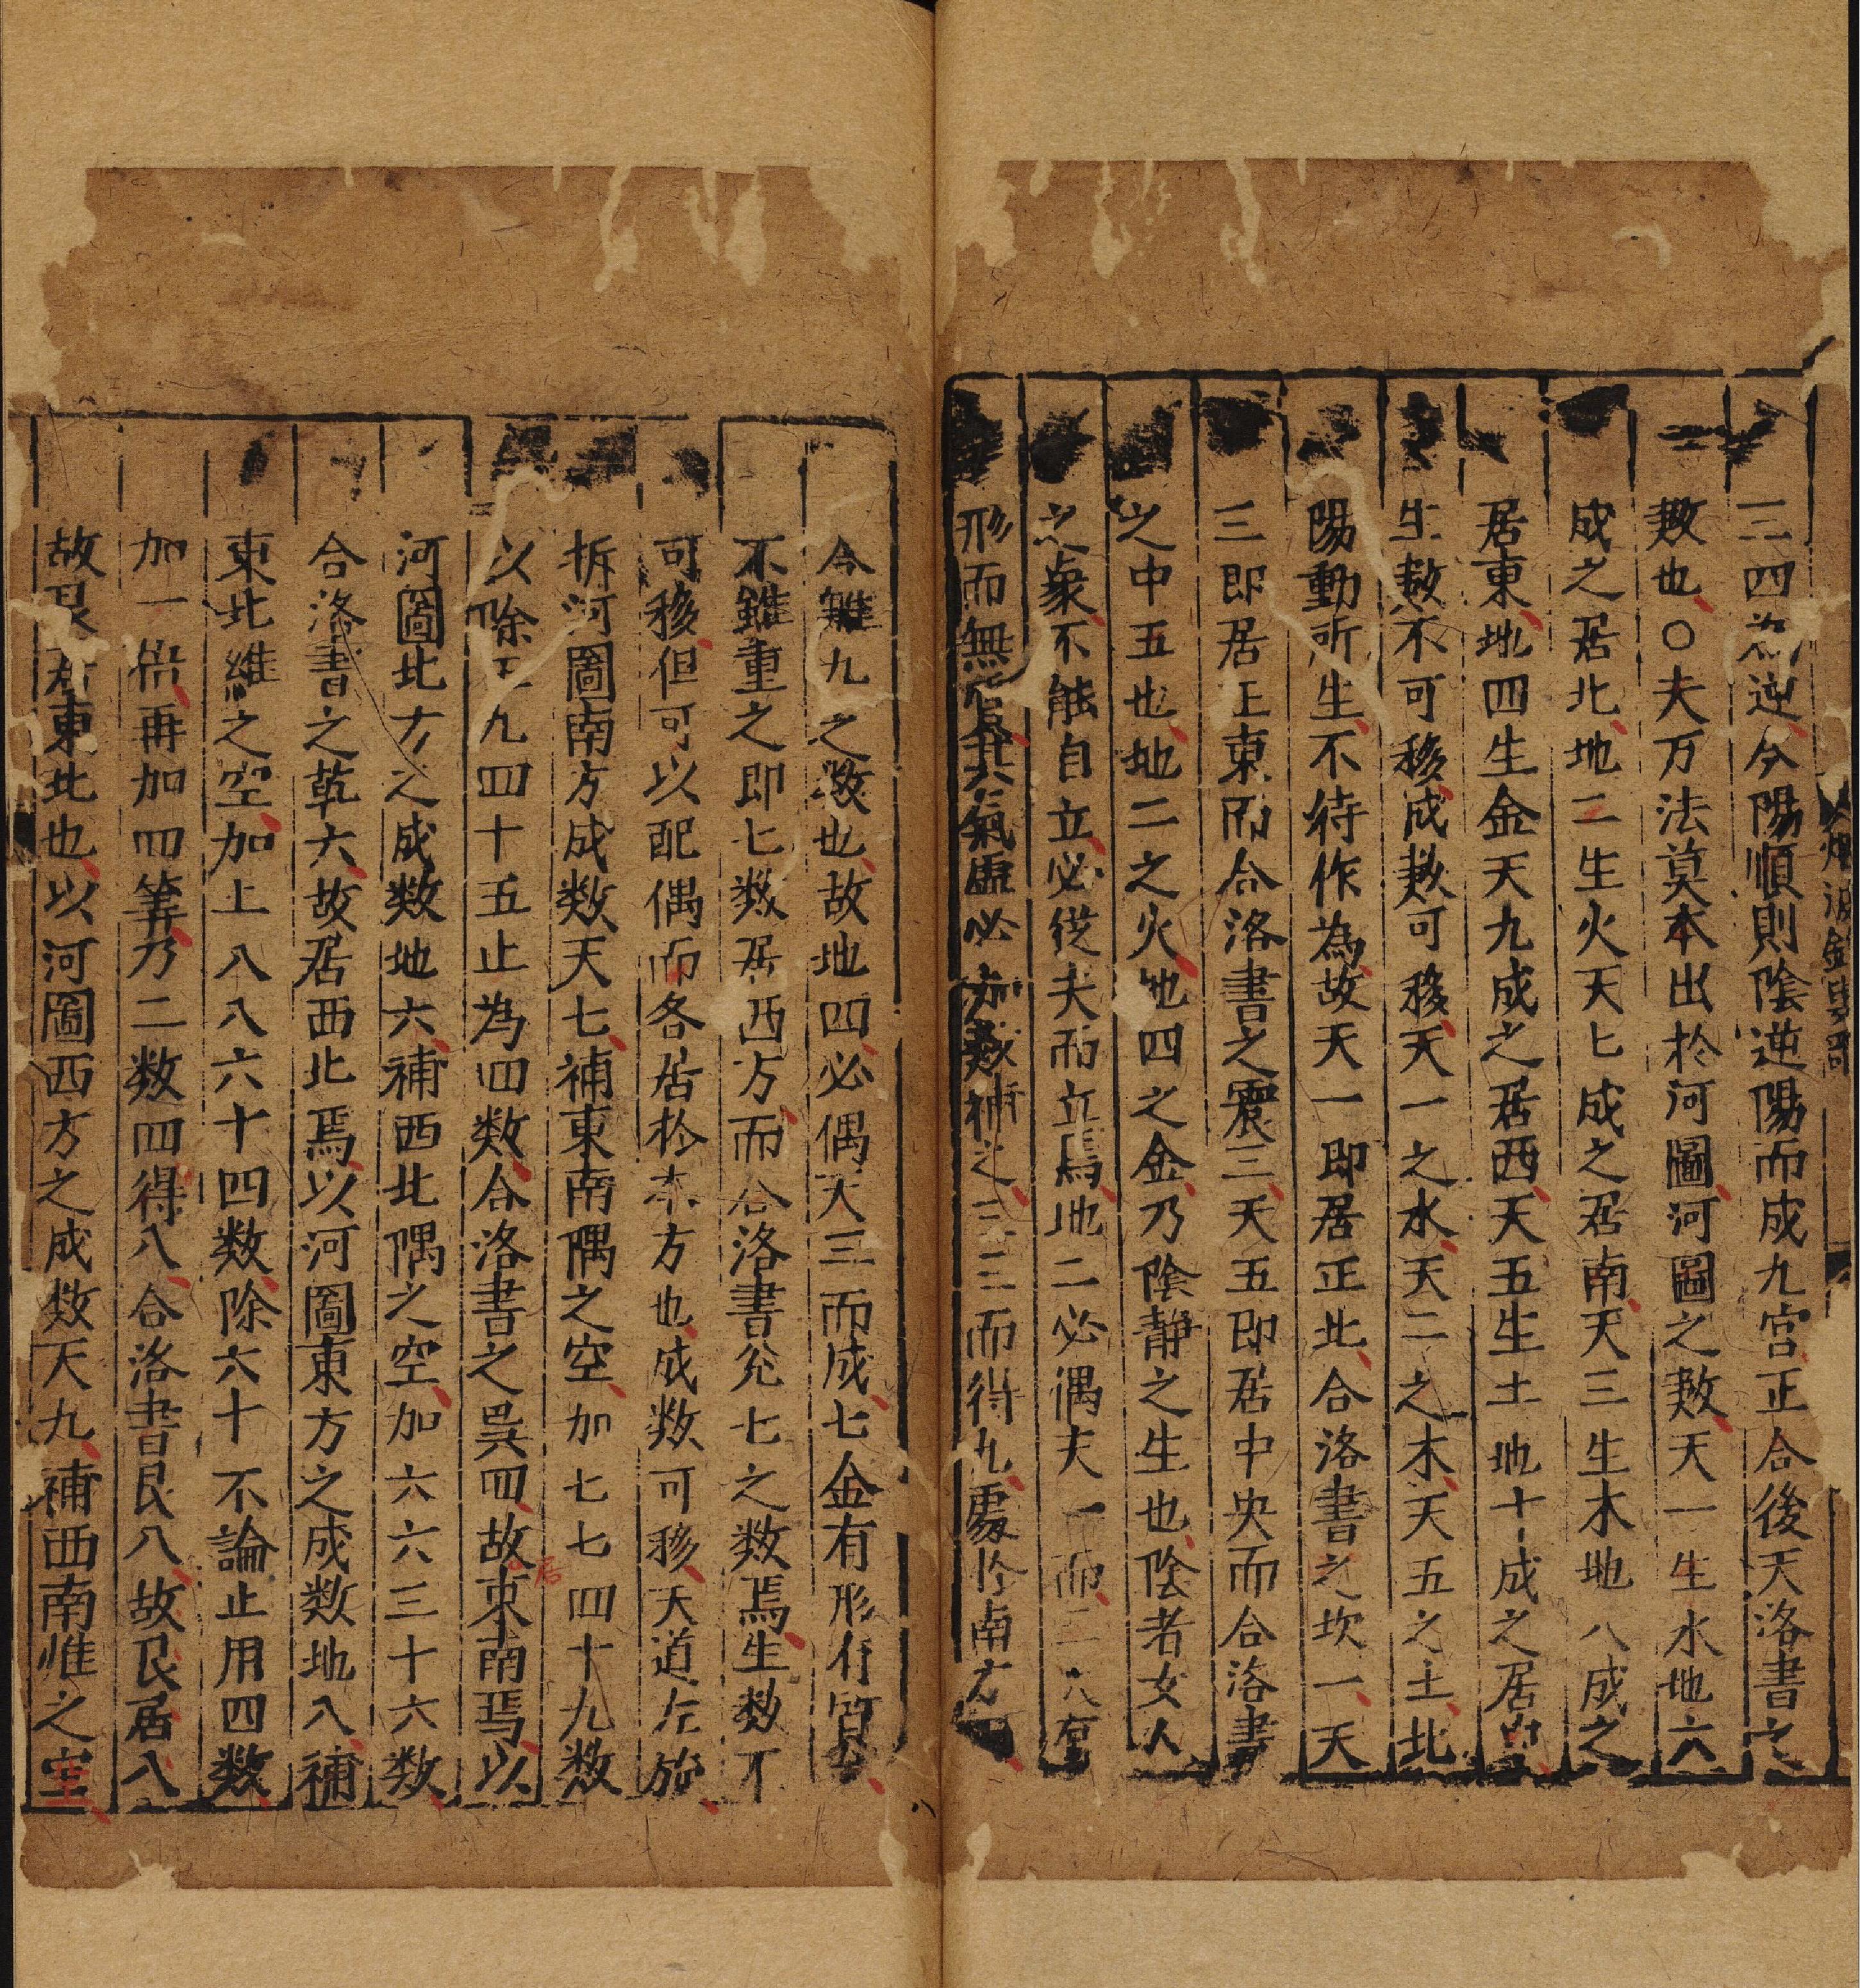 三四為逆今陽順則陰逆陽而成九宮正合後天洛書之
数也○夫万法莫本出於河圖河圖之数天一生水地六
成之居北地二生火天七成之居南天三生木地八成之
居東地四生金天九成之居西天五生土地十成之居中
生数不可移成数可移天一之水天二之木天五之土北
陽動所生不待作為故天一即居正北合洛書之坎一天
三即居正東而合洛書之震三天五即居中央而合洛書
之中五也地二之火地四之金乃陰静之生也陰者女人
之象不能自立必従夫而立焉地二必偶天一而二火有
形而無質其氣虚必加数補之三三而得九處於南方
今雖九之数也故地四必偶天三而成七金有形有質
不雖重之即七数居西方而合洛書兊七之数焉生数不
可移但可以配偶而各居於本方也成数可移天道左旋
拆河圖南方成数天七補東南隅之空加七七四十九数
以除正九四十五止為四数合洛書之巽四故居東南焉以
河圖北方之成数地六補西北隅之空加六六三十六数
合洛書之乾六故居西北焉以河圖東方之成数地八補
東北維之空加上八八六十四数除六十不論止用四数
加一倍再加四筭乃二数四得八合洛書艮八故艮居八
故艮居東北也以河圖西方之成数天九補西南惟之空